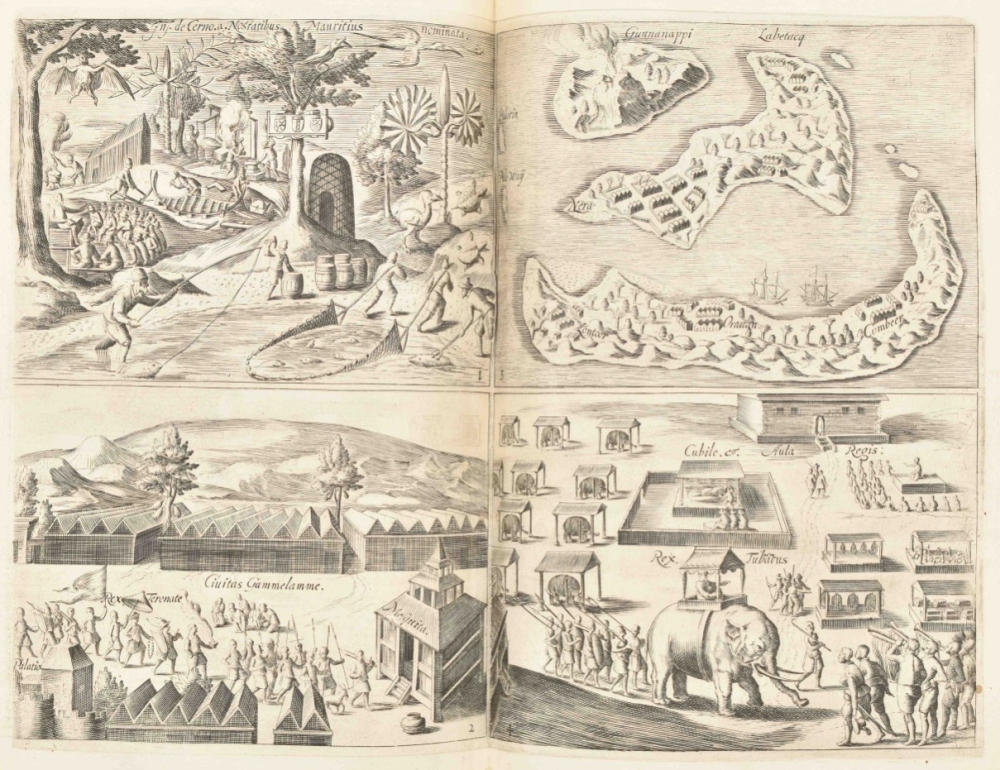 de Cerne a Nostatibus Mauritius nominata.
1
Gunnanappi
Labetacq
Nera
Lontor
Oratan
Combeer
3
Civitas Gammelamme.
Rex Teronate
Mesquita.
Palatiũ
2
Cubile. et. Aula Regis:
Rex Tubatus
4